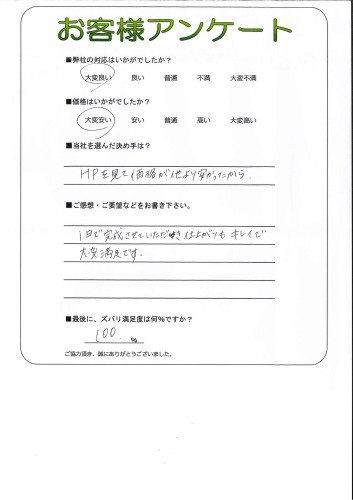 お客様アンケート
■弊社の対応はいかがでしたか?
大変良い 良い 普通 不満 大変不満
■価格はいかがでしたか?
大変安い 安い 普通 高い 大変高い
■当社を選んだ決め手は?
HPを見て価格が他より安かったから.
■ご感想・ご要望などをお書き下さい。
1日で完成させていただき仕上がりも キレイで
大変満足です.
■最後に、ズバリ満足度は何%ですか?
100. %
ご協力頂き、誠にありがとうございました。